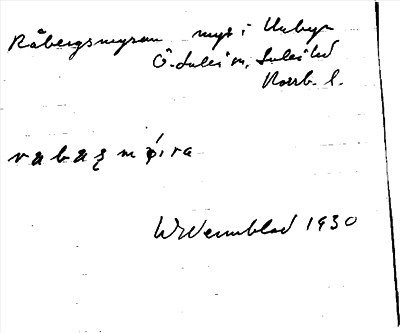 Råbergsmyran myr i Unbyn
Ö-Luleå sn, Luleå tl
Norrb. l.
Wennblad 1930